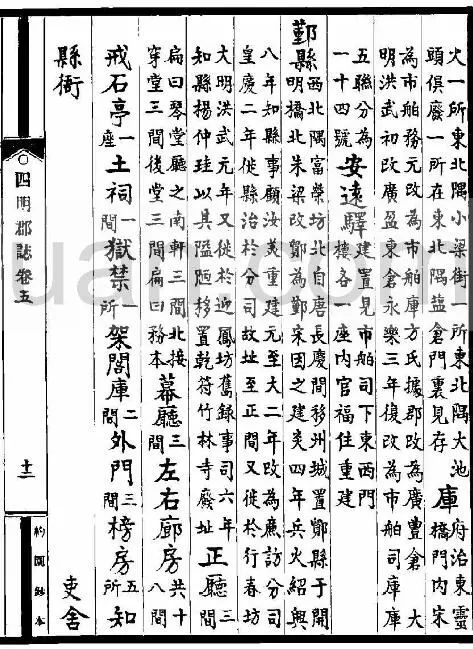 火一所東北隅小梁街所東北隅大池
頭俱廢一所在東北隅鹽倉門裏見存
庫
府治東靈
橋門内宋
為市舶務元改為市舶庫方氏據郡改為廣豊倉 大
明洪武初改廣盈東倉永樂三年復改為市舶司庫庫
五聯分為
一十四號
安遠驛
建置見市舶司下東西門
樓各一座内官福住重建
鄞縣
西北隅富榮坊北自唐長慶間移州城置鄮縣于開
明橋北朱梁改鄮為鄞宋因之建炎四年兵火紹興
八年知縣事顧汝美重建元至大二年改為廉訪分司
皇慶二年徙縣治於分司故址至正間又徙於行春坊
大明洪武元年又徙於迎鳳坊舊錄事司六年
知縣楊仲珪以其隘陋移置乾符竹林寺廢址
正廳 三間
扁曰琴堂廳之南軒三間北接
穿堂三間後堂三間扁曰務本
幕廳 三間 左右廊房 共十八間
戒石亭 一座 土祠 一間 獄禁 一所 架閣庫 二間 外門 三間 榜房 五所 知
縣衙 吏舍
四明郡誌卷五
十二
約園鈔本